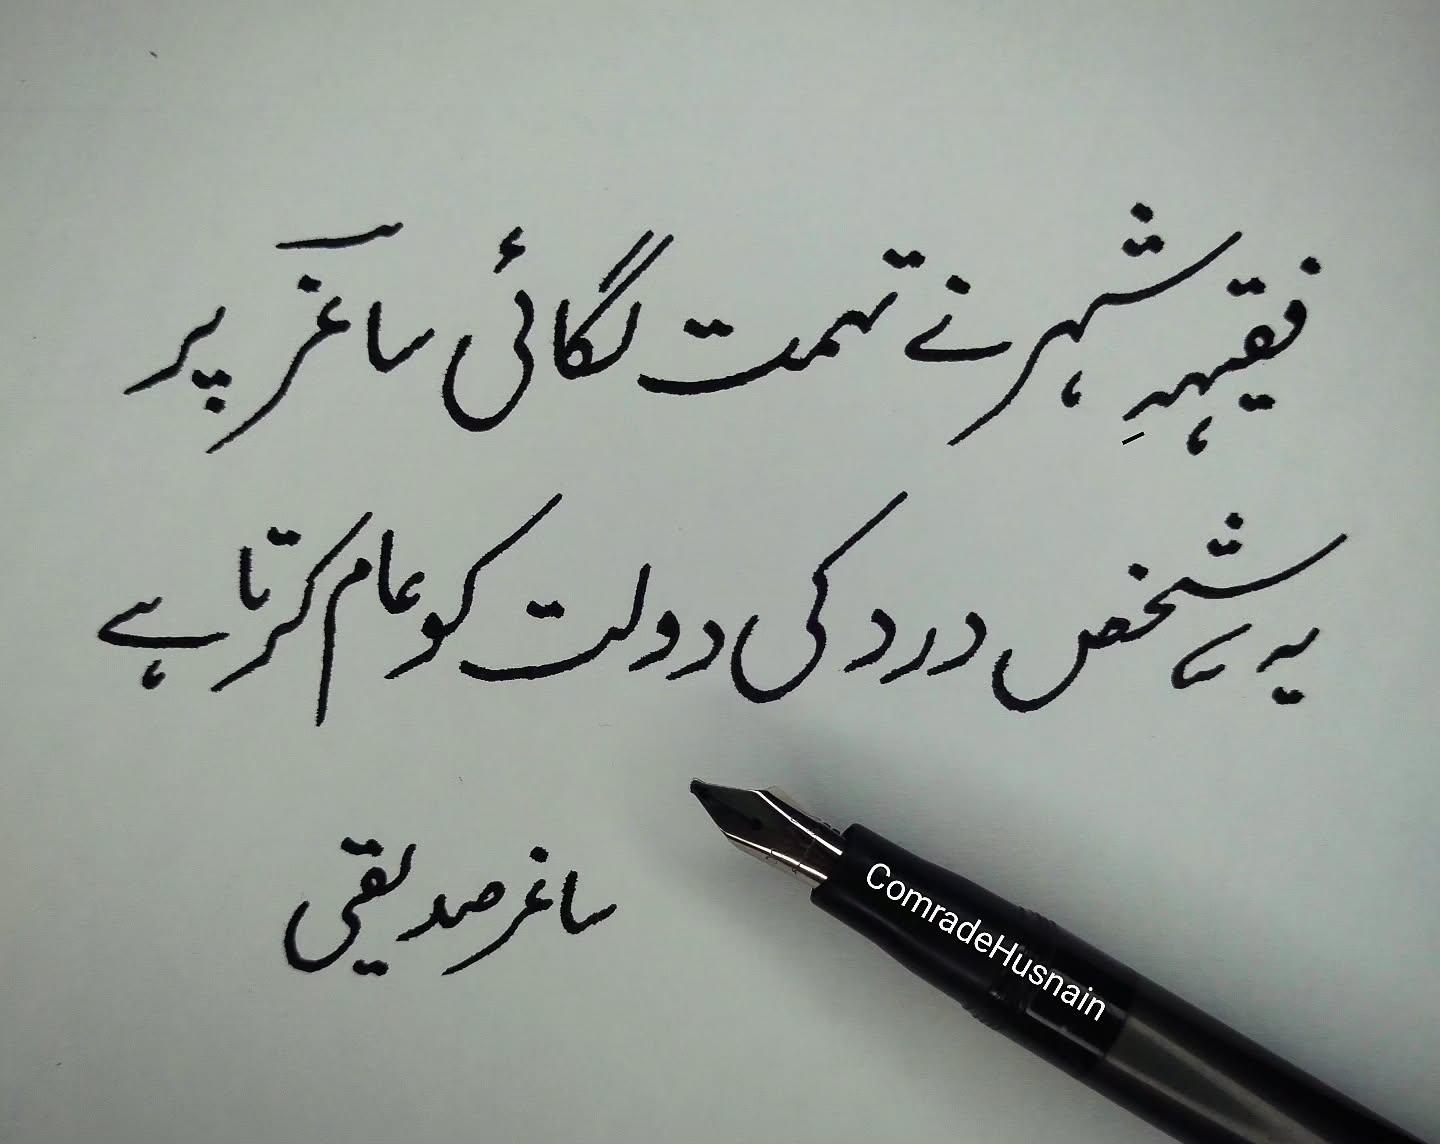 فقیہہِ شہر نے تہمت لگائی ساغرؔ پر
یہ شخص درد کی دولت کو عام کرتا ہے
ساغر صدیقی
ComradeHusnain